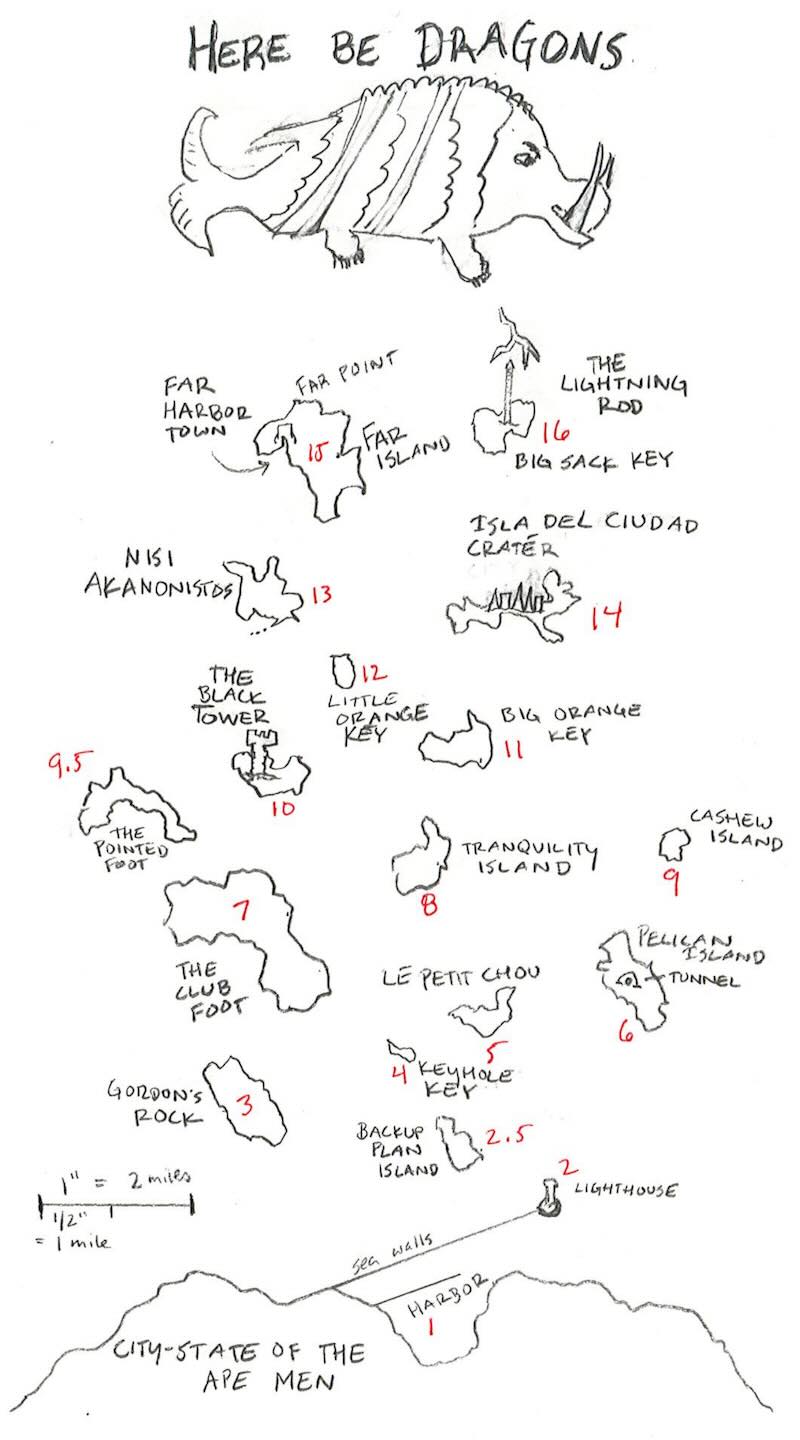 HERE BE DRAGONS
FAR
HARBOR
TOWN
FAR POINT
FAR
ISLAND
15
THE
LIGHTNING
ROD
16
BIG SACK KEY
NISI
AKANONISTOS
13
ISLA DEL CIUDAD
CRATÉR
14
THE
BLACK
TOWER
10
12
LITTLE
ORANGE
KEY
BIG ORANGE
KEY
11
9.5
THE
POINTED
FOOT
TRANQUILITY
ISLAND
8
CASHEW
ISLAND
9
7
THE
CLUB
FOOT
LE PETIT CHOU
5
PELICAN
ISLAND
TUNNEL
6
4 KEYHOLE
KEY
GORDON'S
ROCK
3
BACKUP
PLAN
ISLAND
2.5
2
LIGHTHOUSE
1" = 2 miles
1/2"
= 1 mile
sea walls
HARBOR
1
CITY-STATE OF THE
APE MEN